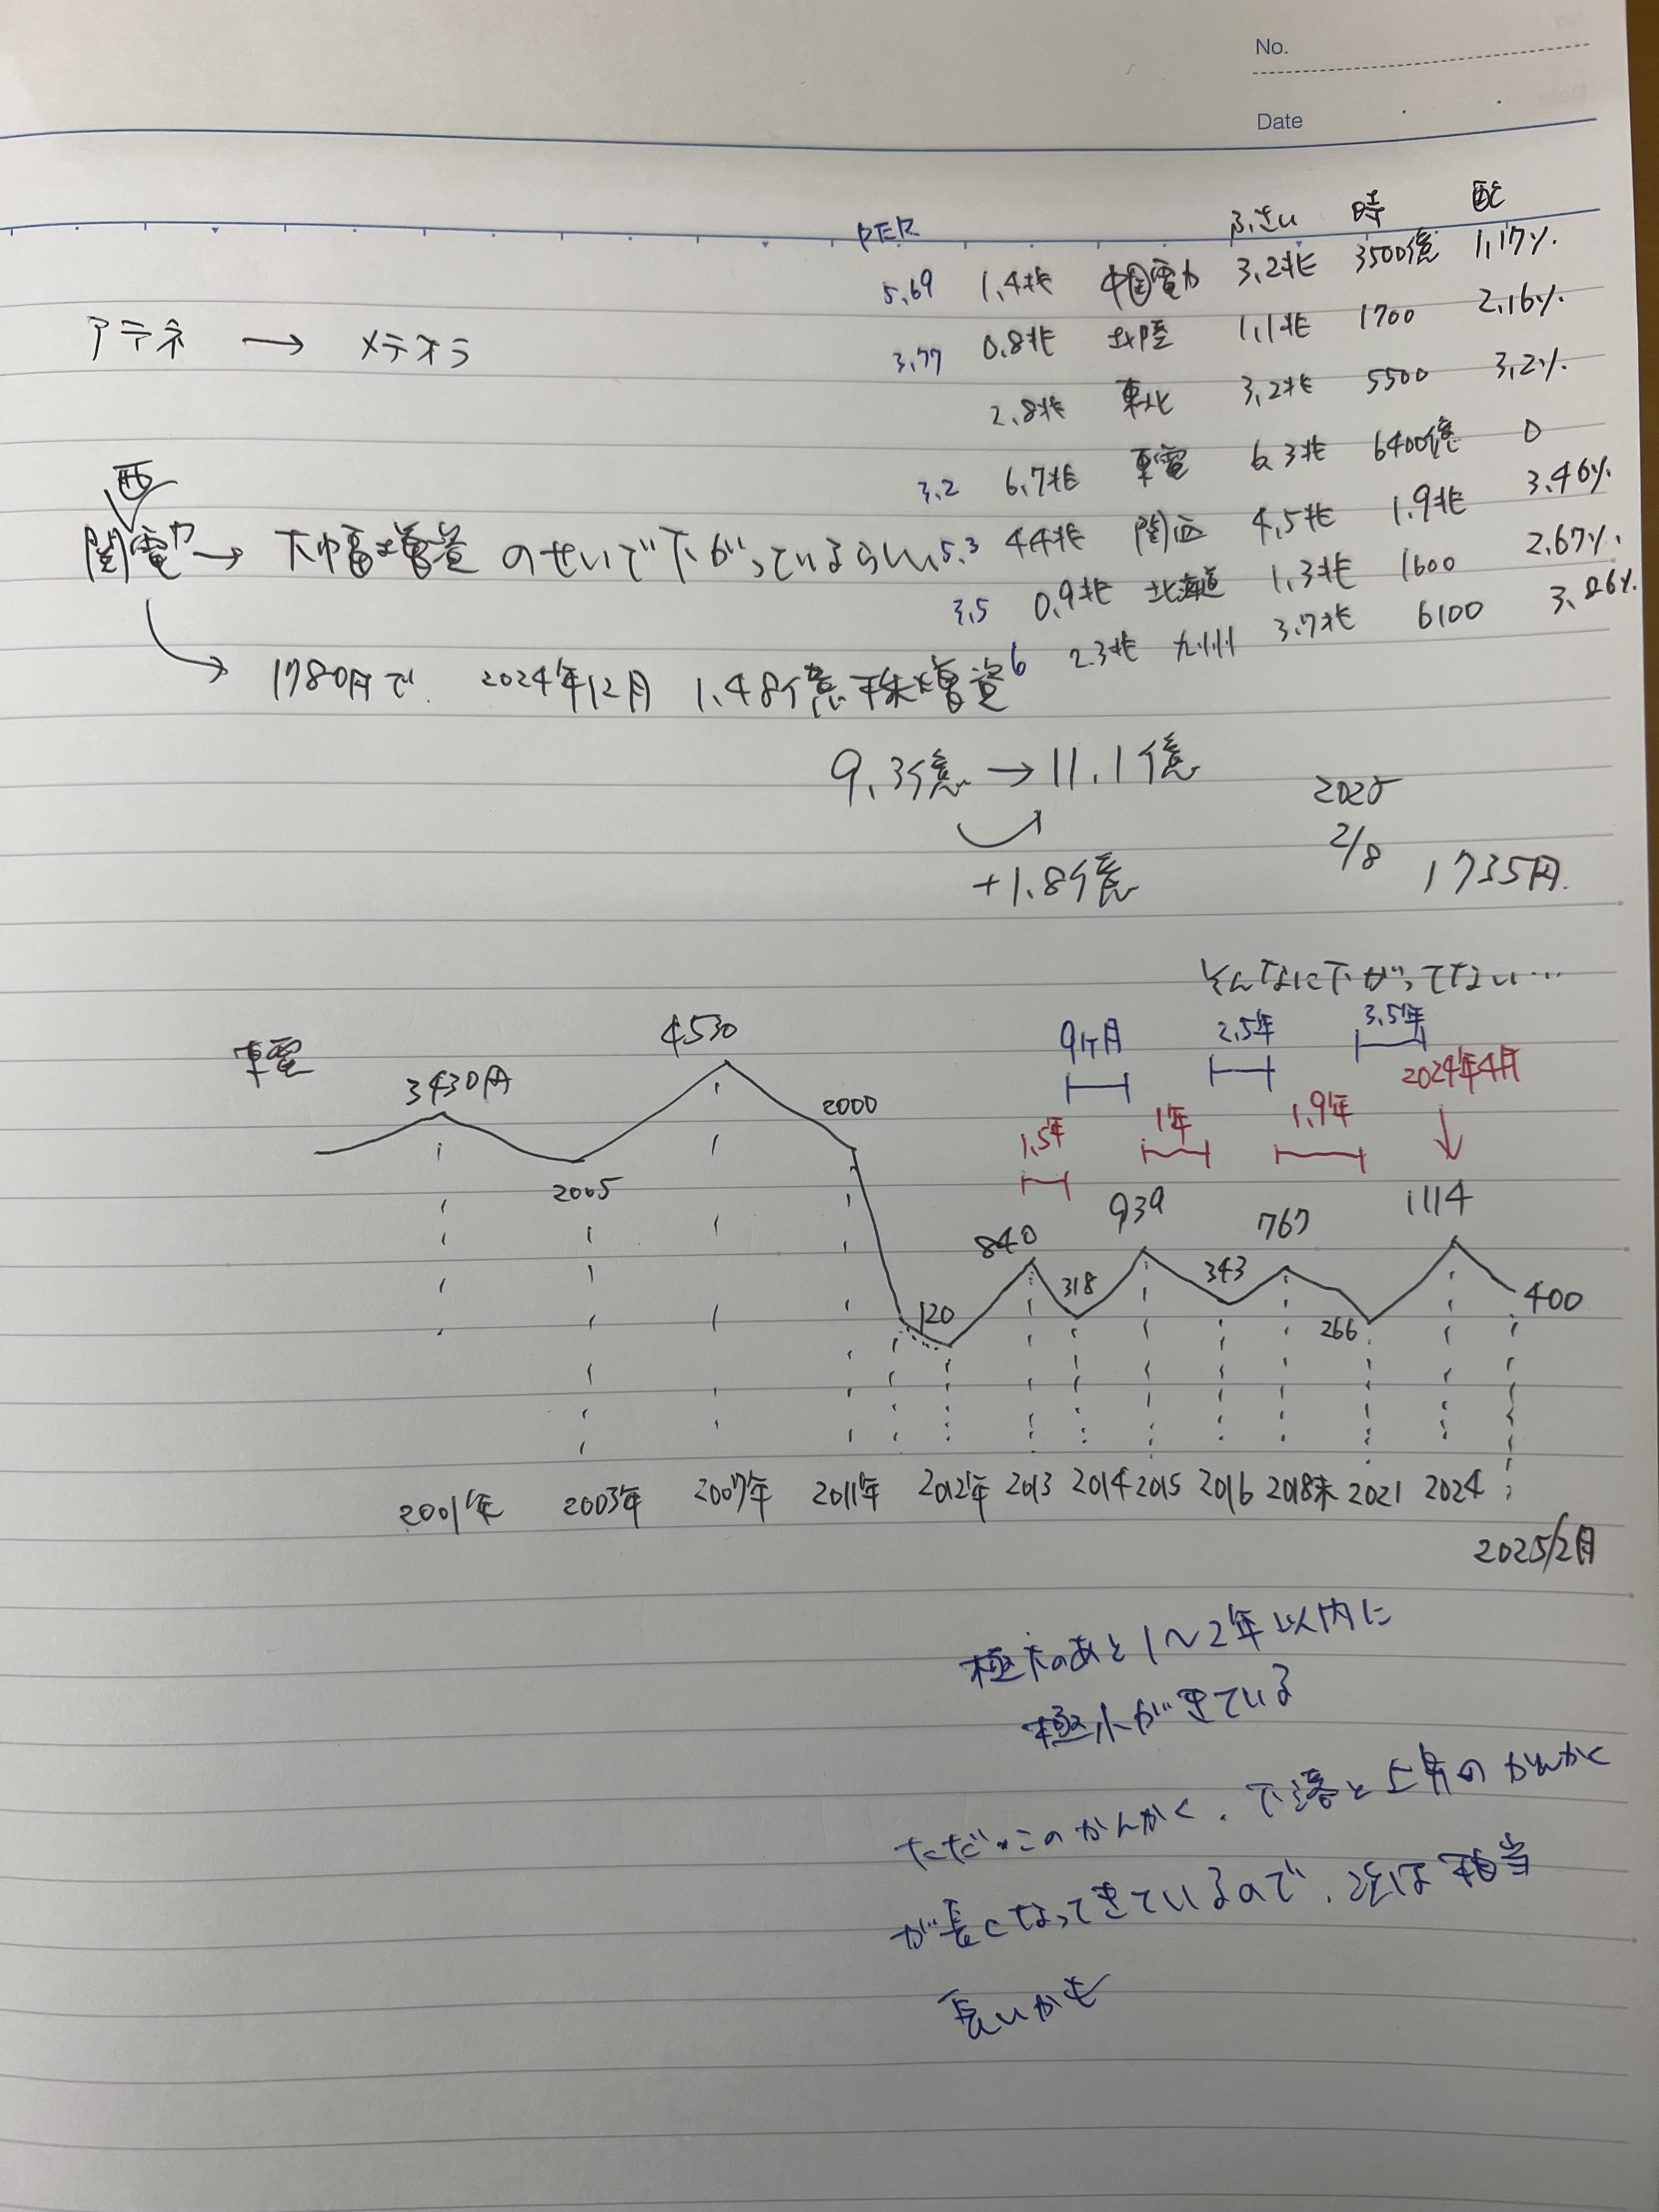 No.
Date
PER ふさい 時 配
5.69 1.4兆 中国電力 3.2兆 3500億 1.17%
3.77 0.8兆 北陸 1.1兆 1700 2.16%
2.8兆 東北 3.2兆 5500 3.2%
3.2 6.7兆 東電 6.3兆 6400億 0
5.3 4.4兆 関西 4.5兆 1.9兆 3.46%
3.5 0.9兆 北海道 1.3兆 1600 2.67%
6 2.3兆 九州 3.7兆 6100 3.86%
アテネ → メテオラ
西
関電力 → 大幅増資のせいで下がっているらしい
1780円で 2024年12月 1.48億株増資
9.3億 → 11.1億
+1.8億
2025
2/8 1735円.
そんなに下がってない…
東電
3430円 4530 2000
2005
9ケ月 2.5年 3.5年
1.5年 1年 1.9年 2024年4月
840 939 767 1114
120 318 343 266 400
2001年 2003年 2007年 2011年 2012年 2013 2014 2015 2016 2018末 2021 2024
2025/2月
極大のあと1〜2年以内に
極小がきている
ただ、このかんかく、下落と上昇のかんかく
が長くなってきているので、次は相当
長いかも